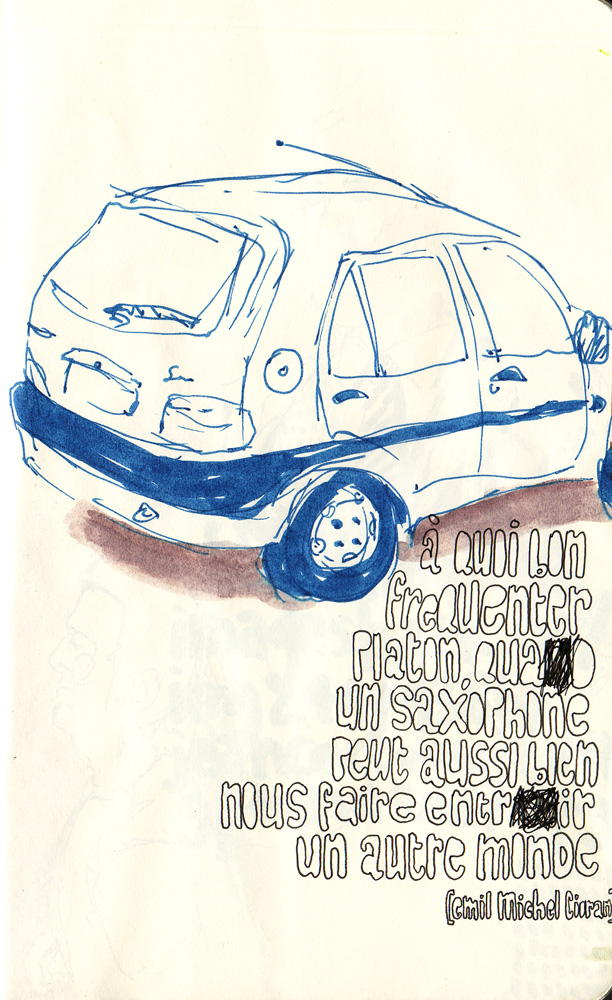 à quoi bon
frequenter
Platon, qua
un saxophone
peut aussi bien
nous faire entr ir
un autre monde
(emil Michel Cioran)